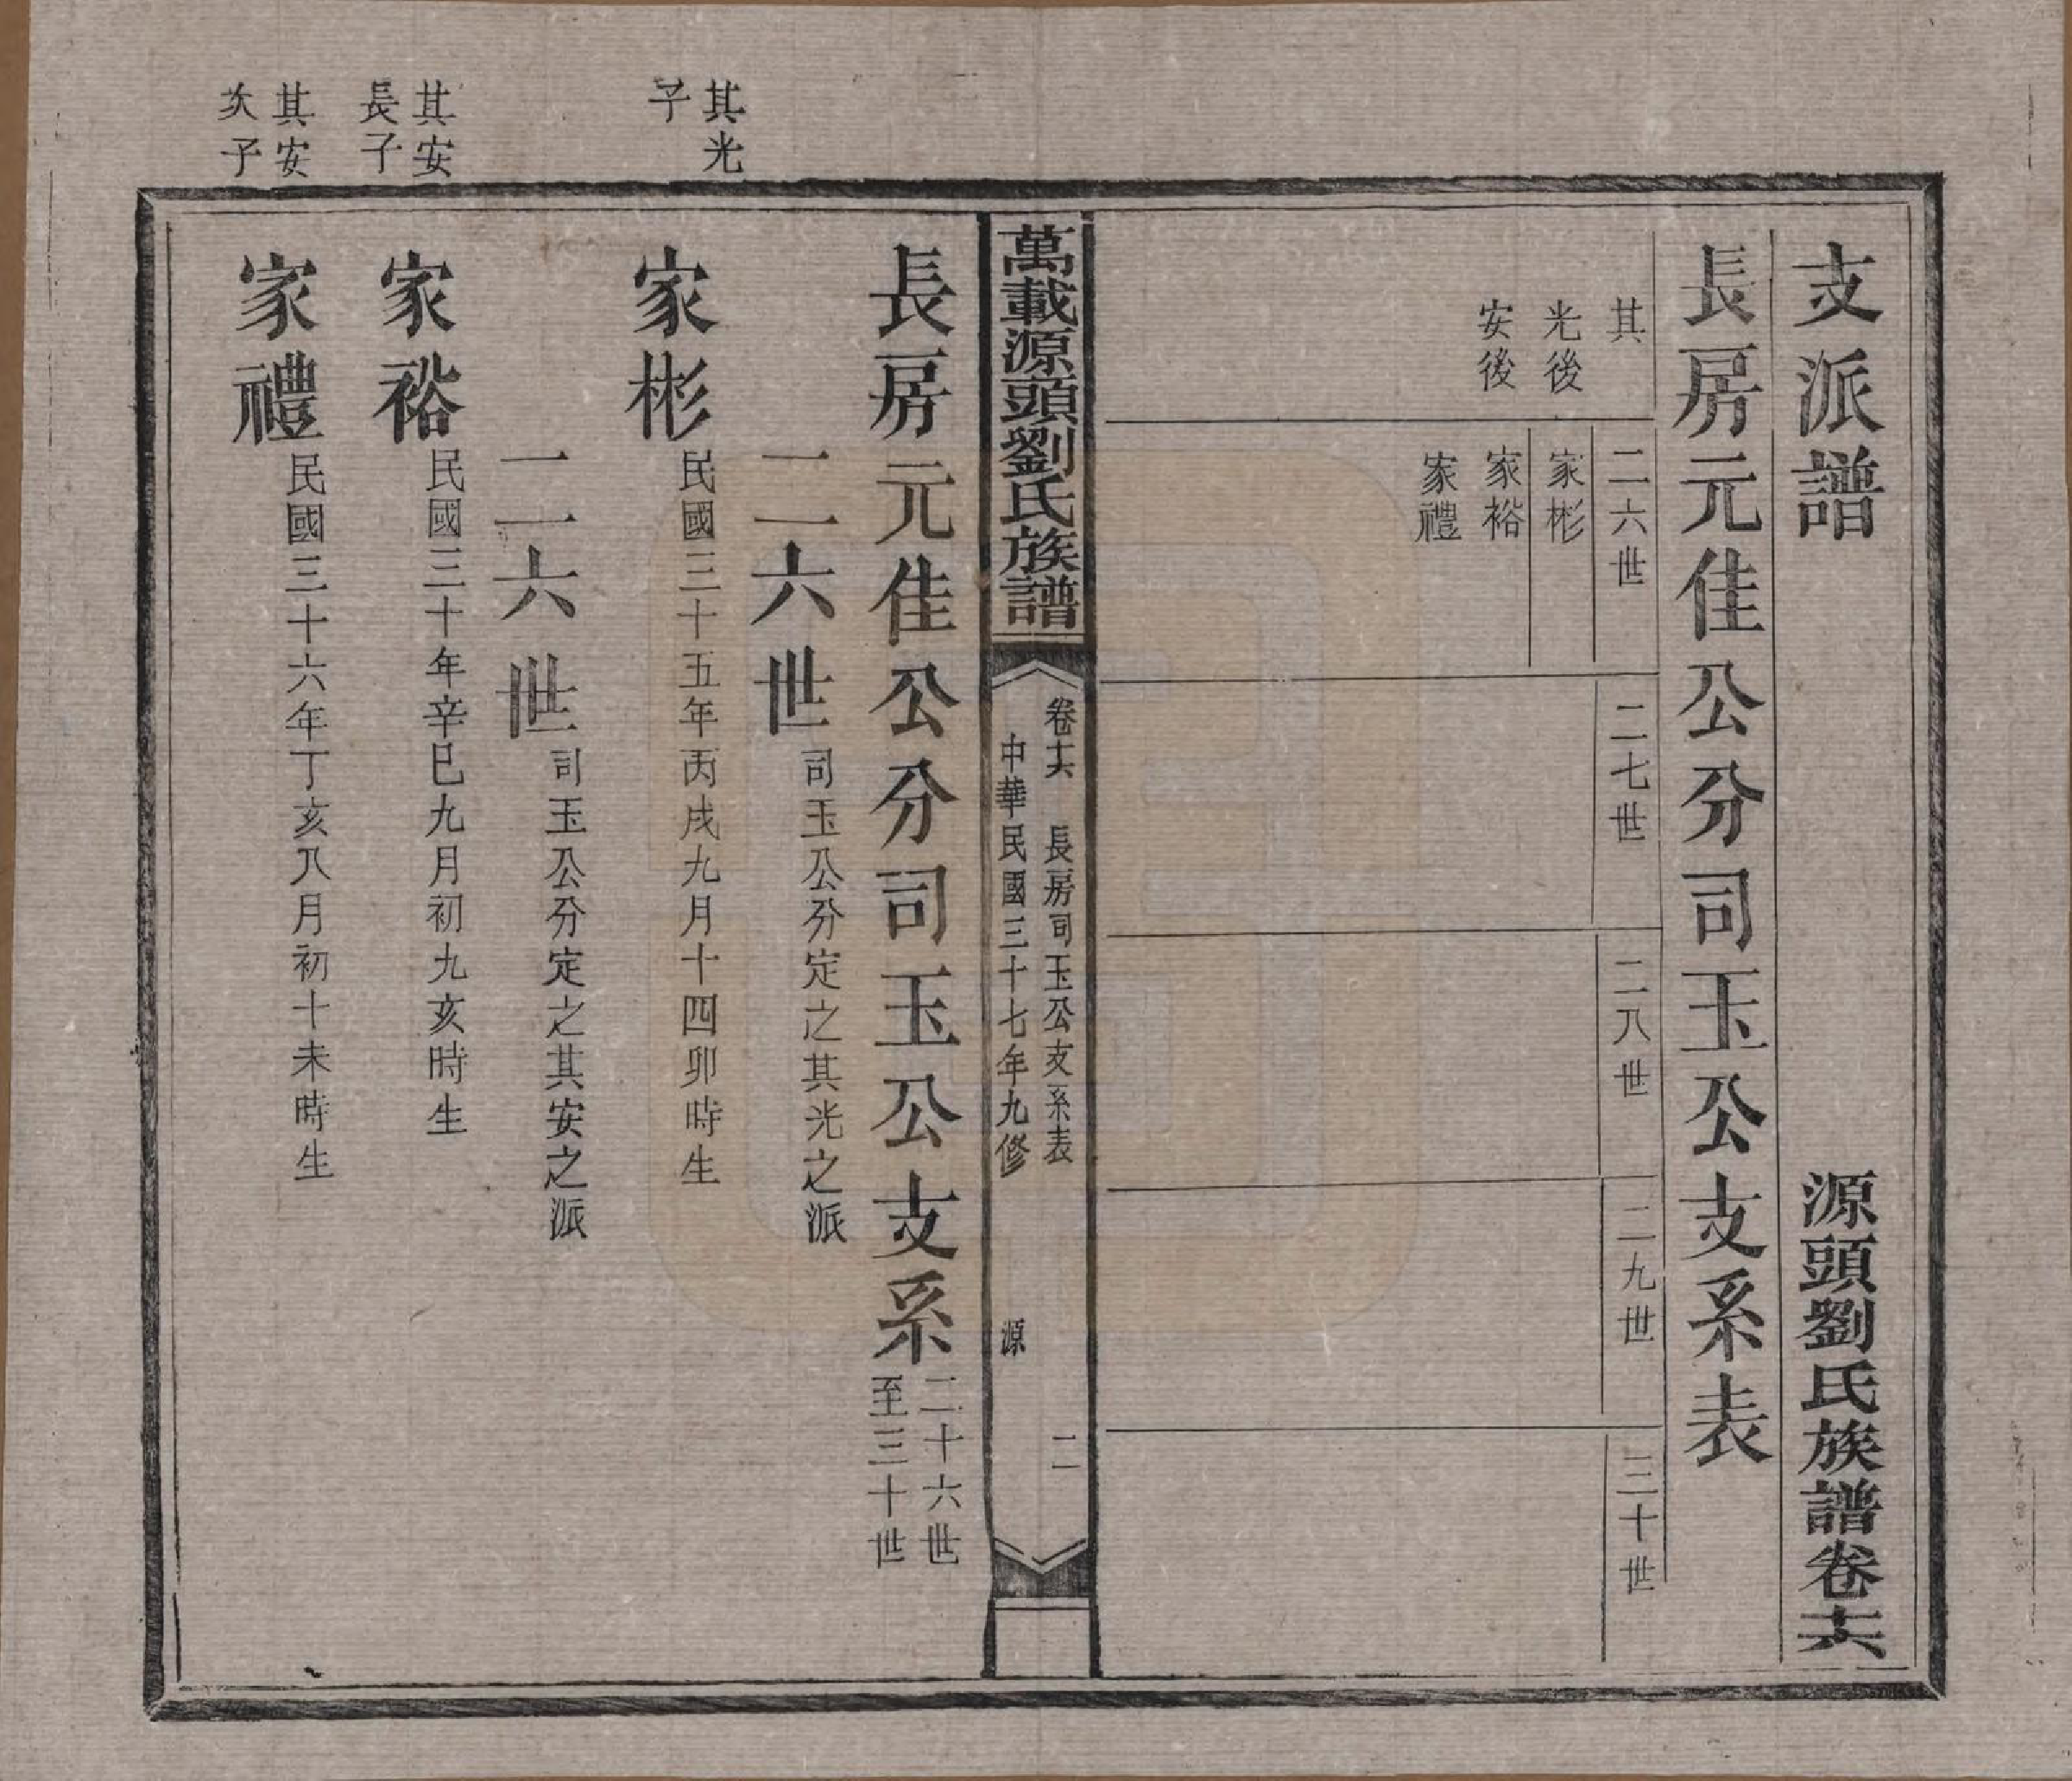 支派譜
源頭劉氏族譜卷十六
長房元佳公分司玉公支系表
其
光後
安後
二六世
家彬
家裕
家禮
二七世
二八世
二九世
三十世
萬載源頭劉氏族譜
卷十六 長房司玉公支系表 二
中華民國三十七年九修 源
長房元佳公分司玉公支系
二十六世
至三十世
二六世
司玉公分定之其光之派
其光
子
家彬
民國三十五年丙戌九月十四卯時生
二六世
司玉公分定之其安之派
其安
長子
家裕
民國三十年辛巳九月初九亥時生
其安
次子
家禮
民國三十六年丁亥八月初十未時生